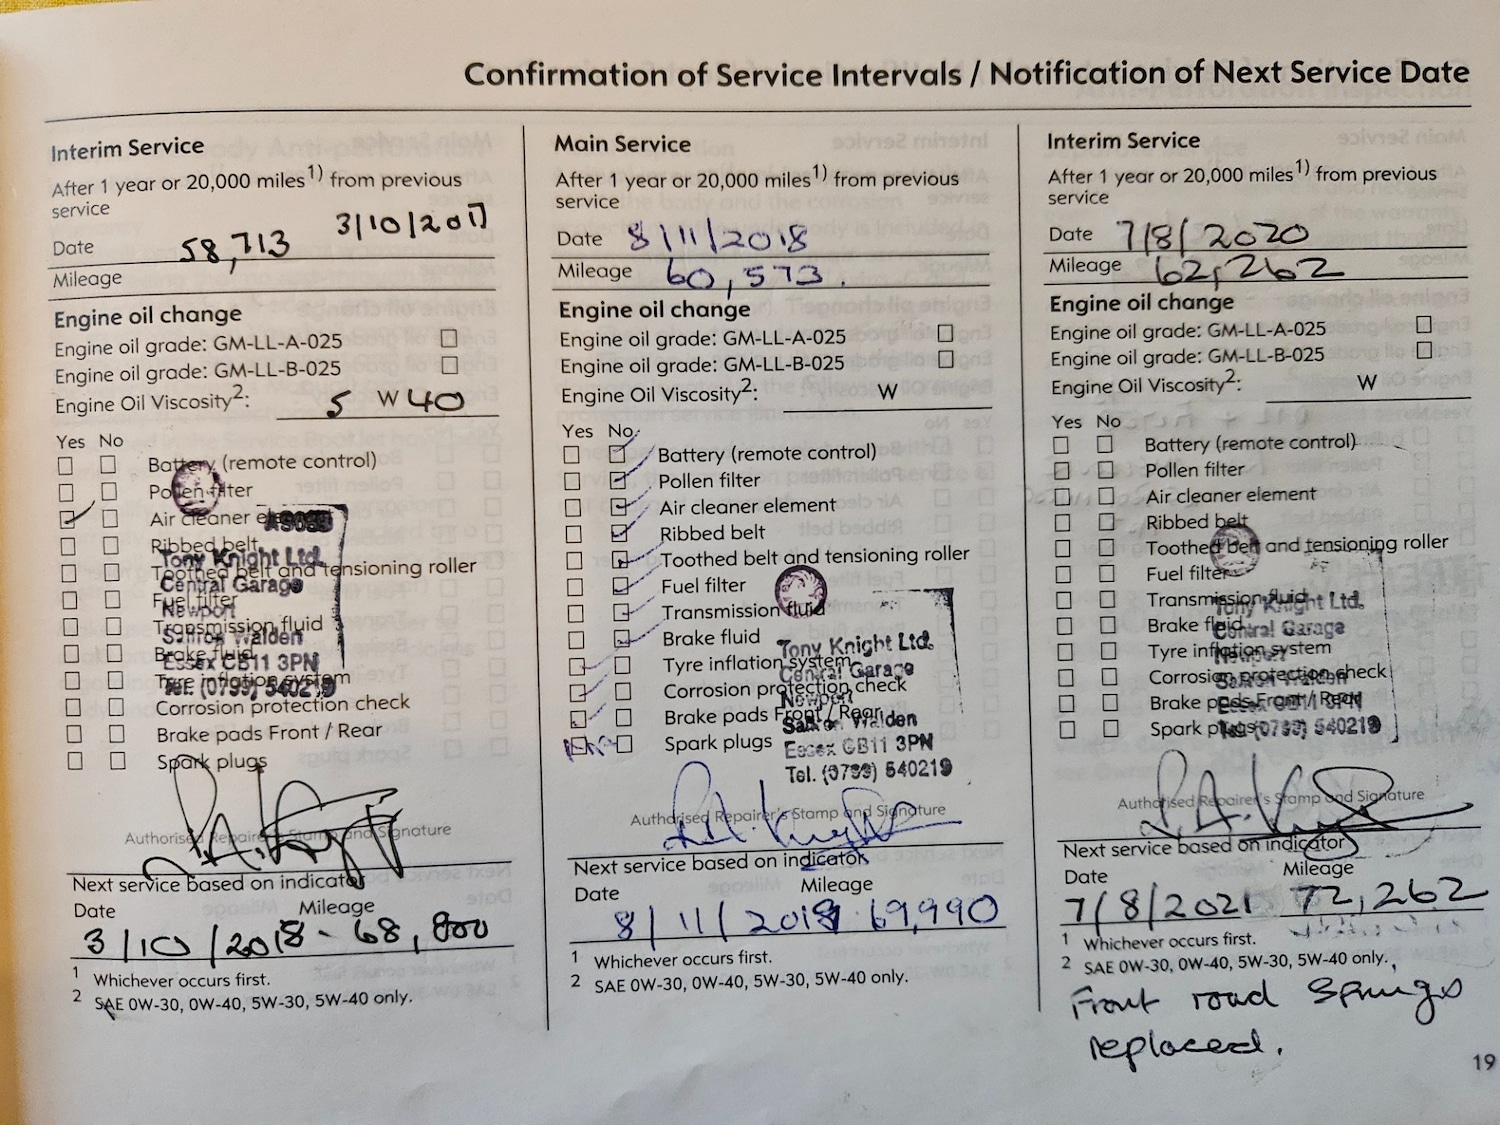 Confirmation of Service Intervals / Notification of Next Service Date
Interim Service
After 1 year or 20,000 miles1) from previous
service
3/10/2017
Date 58,713
Mileage
Engine oil change
Engine oil grade: GM-LL-A-025
Engine oil grade: GM-LL-B-025
Engine Oil Viscosity2: 5 W 40
Yes No
Battery (remote control)
Pollen filter
Air cleaner element
Ribbed belt
Tony Knight Ltd.
Toothed belt and tensioning roller
Central Garage
Fuel filter
Newport
Transmission fluid
Saffron Walden
Brake fluid
Essex CB11 3PN
Tyre inflation system
Tel. (0799) 540219
Corrosion protection check
Brake pads Front / Rear
Spark plugs
Authorised Repairer's Stamp and Signature
Next service based on indicator
Date Mileage
3/10/2018 - 68,800
1 Whichever occurs first.
2 SAE 0W-30, 0W-40, 5W-30, 5W-40 only.
Main Service
After 1 year or 20,000 miles1) from previous
service
Date 8/11/2018
Mileage 60,573.
Engine oil change
Engine oil grade: GM-LL-A-025
Engine oil grade: GM-LL-B-025
Engine Oil Viscosity2: W
Yes No
Battery (remote control)
Pollen filter
Air cleaner element
Ribbed belt
Toothed belt and tensioning roller
Fuel filter
Transmission fluid
Brake fluid
Tony Knight Ltd.
Tyre inflation system
Central Garage
Corrosion protection check
Newport
Brake pads Front / Rear
Saffron Walden
Spark plugs
Essex CB11 3PN
Tel. (0799) 540219
Authorised Repairer's Stamp and Signature
Next service based on indicator
Date Mileage
8/11/2019 69,990
1 Whichever occurs first.
2 SAE 0W-30, 0W-40, 5W-30, 5W-40 only.
Interim Service
After 1 year or 20,000 miles1) from previous
service
Date 7/8/2020
Mileage 62,262
Engine oil change
Engine oil grade: GM-LL-A-025
Engine oil grade: GM-LL-B-025
Engine Oil Viscosity2: W
Yes No
Battery (remote control)
Pollen filter
Air cleaner element
Ribbed belt
Toothed belt and tensioning roller
Fuel filter
Transmission fluid
Tony Knight Ltd.
Brake fluid
Central Garage
Tyre inflation system
Newport
Corrosion protection check
Saffron Walden
Brake pads Front / Rear
Essex CB11 3PN
Spark plugs
Tel. (0799) 540219
Authorised Repairer's Stamp and Signature
Next service based on indicator
Date Mileage
7/8/2021 72,262
1 Whichever occurs first.
2 SAE 0W-30, 0W-40, 5W-30, 5W-40 only.
Front road Springs
replaced.
19